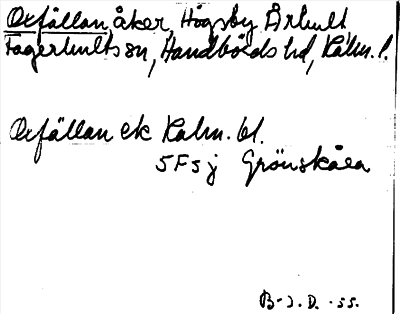 Oxfällan åker, Högsby Århult
Fagerhults sn, Handbörds hd, Kalm. l.
Oxfällan ek Kalm. bl.
5F5j Grönskåra
B-J.D. -55.